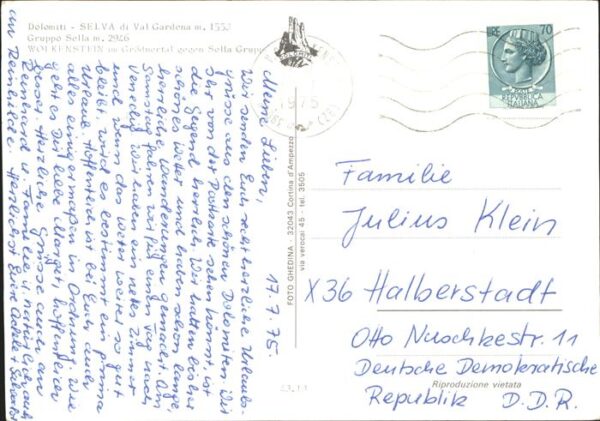 Dolomiti - SELVA di Val Gardena m. 1553
Gruppo Sella m. 2946
WOLKENSTEIN in Grödnertal gegen Sella Gruppe
17.7.75
Meine Lieben,
Wir senden Euch recht herzliche Urlaubs-
grüsse aus den schönen Dolomiten. Wie
Ihr von der Postkarte sehen könnt ist
die Gegend herrlich. Wir hatten bisher
schönes Wetter und haben schon lange,
herrliche Wanderungen gemacht. Am
Samstag fahren wir für einen Tag nach
Venedig. Wir haben ein nettes Zimmer
und wenn das Wetter weiter so gut
bleibt, wird es bestimmt ein prima
Urlaub. Hoffentlich ist bei Euch auch
alles einigermaßen in Ordnung. Wie
geht es Dir liebe Margret, hoffentlich
besser. Herzliche Grüsse auch an
Reinhard u. Familie u. natürlich auch
an Reinhilde. Herzlichst Eure
FOTO GHEDINA - 32043 Cortina d'Ampezzo
via verocai 45 - tel. 3505
1975
LIRE 70
POSTE
REPVBBLICA
ITALIANA
Familie
Julius Klein
X36 Halberstadt
Otto Nuschkestr. 11
Deutsche Demokratische
Republik D.D.R.
Riproduzione vietata